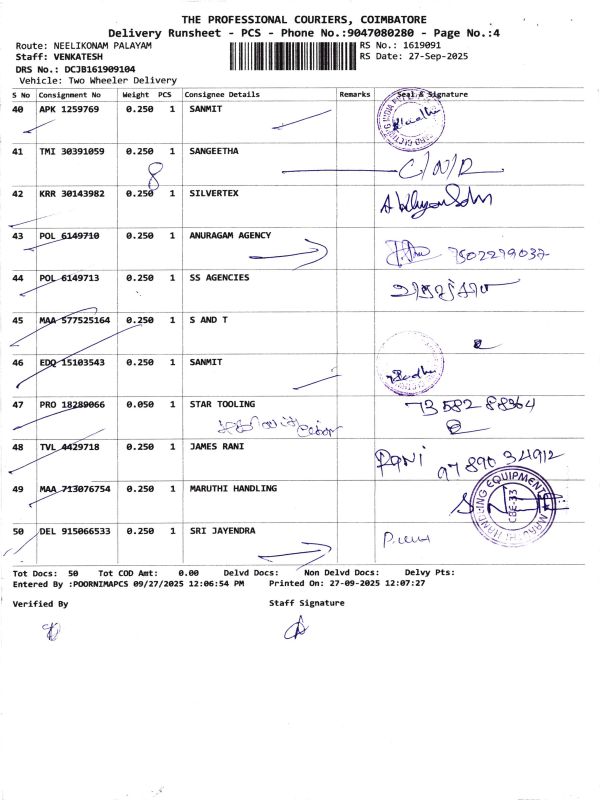 THE PROFESSIONAL COURIERS, COIMBATORE
Delivery Runsheet - PCS - Phone No.:9047080280 - Page No.:4
Route: NEELIKONAM PALAYAM
RS No.: 1619091
Staff: VENKATESH
RS Date: 27-Sep-2025
DRS No.: DCJB161909104
Vehicle: Two Wheeler Delivery
S No Consignment No Weight PCS Consignee Details Remarks Seal & Signature
40 APK 1259769 0.250 1 SANMIT
41 TMI 30391059 0.250 1 SANGEETHA
8
C/N/R
42 KRR 30143982 0.250 1 SILVERTEX
43 POL 6149710 0.250 1 ANURAGAM AGENCY
7502279037
44 POL 6149713 0.250 1 SS AGENCIES
45 MAA 577525164 0.250 1 S AND T
46 EDQ 15103543 0.250 1 SANMIT
47 PRO 18289066 0.050 1 STAR TOOLING
73582 88364
48 TVL 4429718 0.250 1 JAMES RANI
Rani 97890 34912
49 MAA 713076754 0.250 1 MARUTHI HANDLING
MARUTHI HANDLING EQUIPMENTS
CBE-33
50 DEL 915066533 0.250 1 SRI JAYENDRA
Tot Docs: 50 Tot COD Amt: 0.00 Delvd Docs: Non Delvd Docs: Delvy Pts:
Entered By :POORNIMAPCS 09/27/2025 12:06:54 PM Printed On: 27-09-2025 12:07:27
Verified By Staff Signature